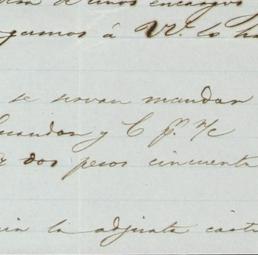 de unos encargos
á VV. lo
se sirvan mandar
y C pr. n/c
dos pesos cincuenta
la adjunta carta